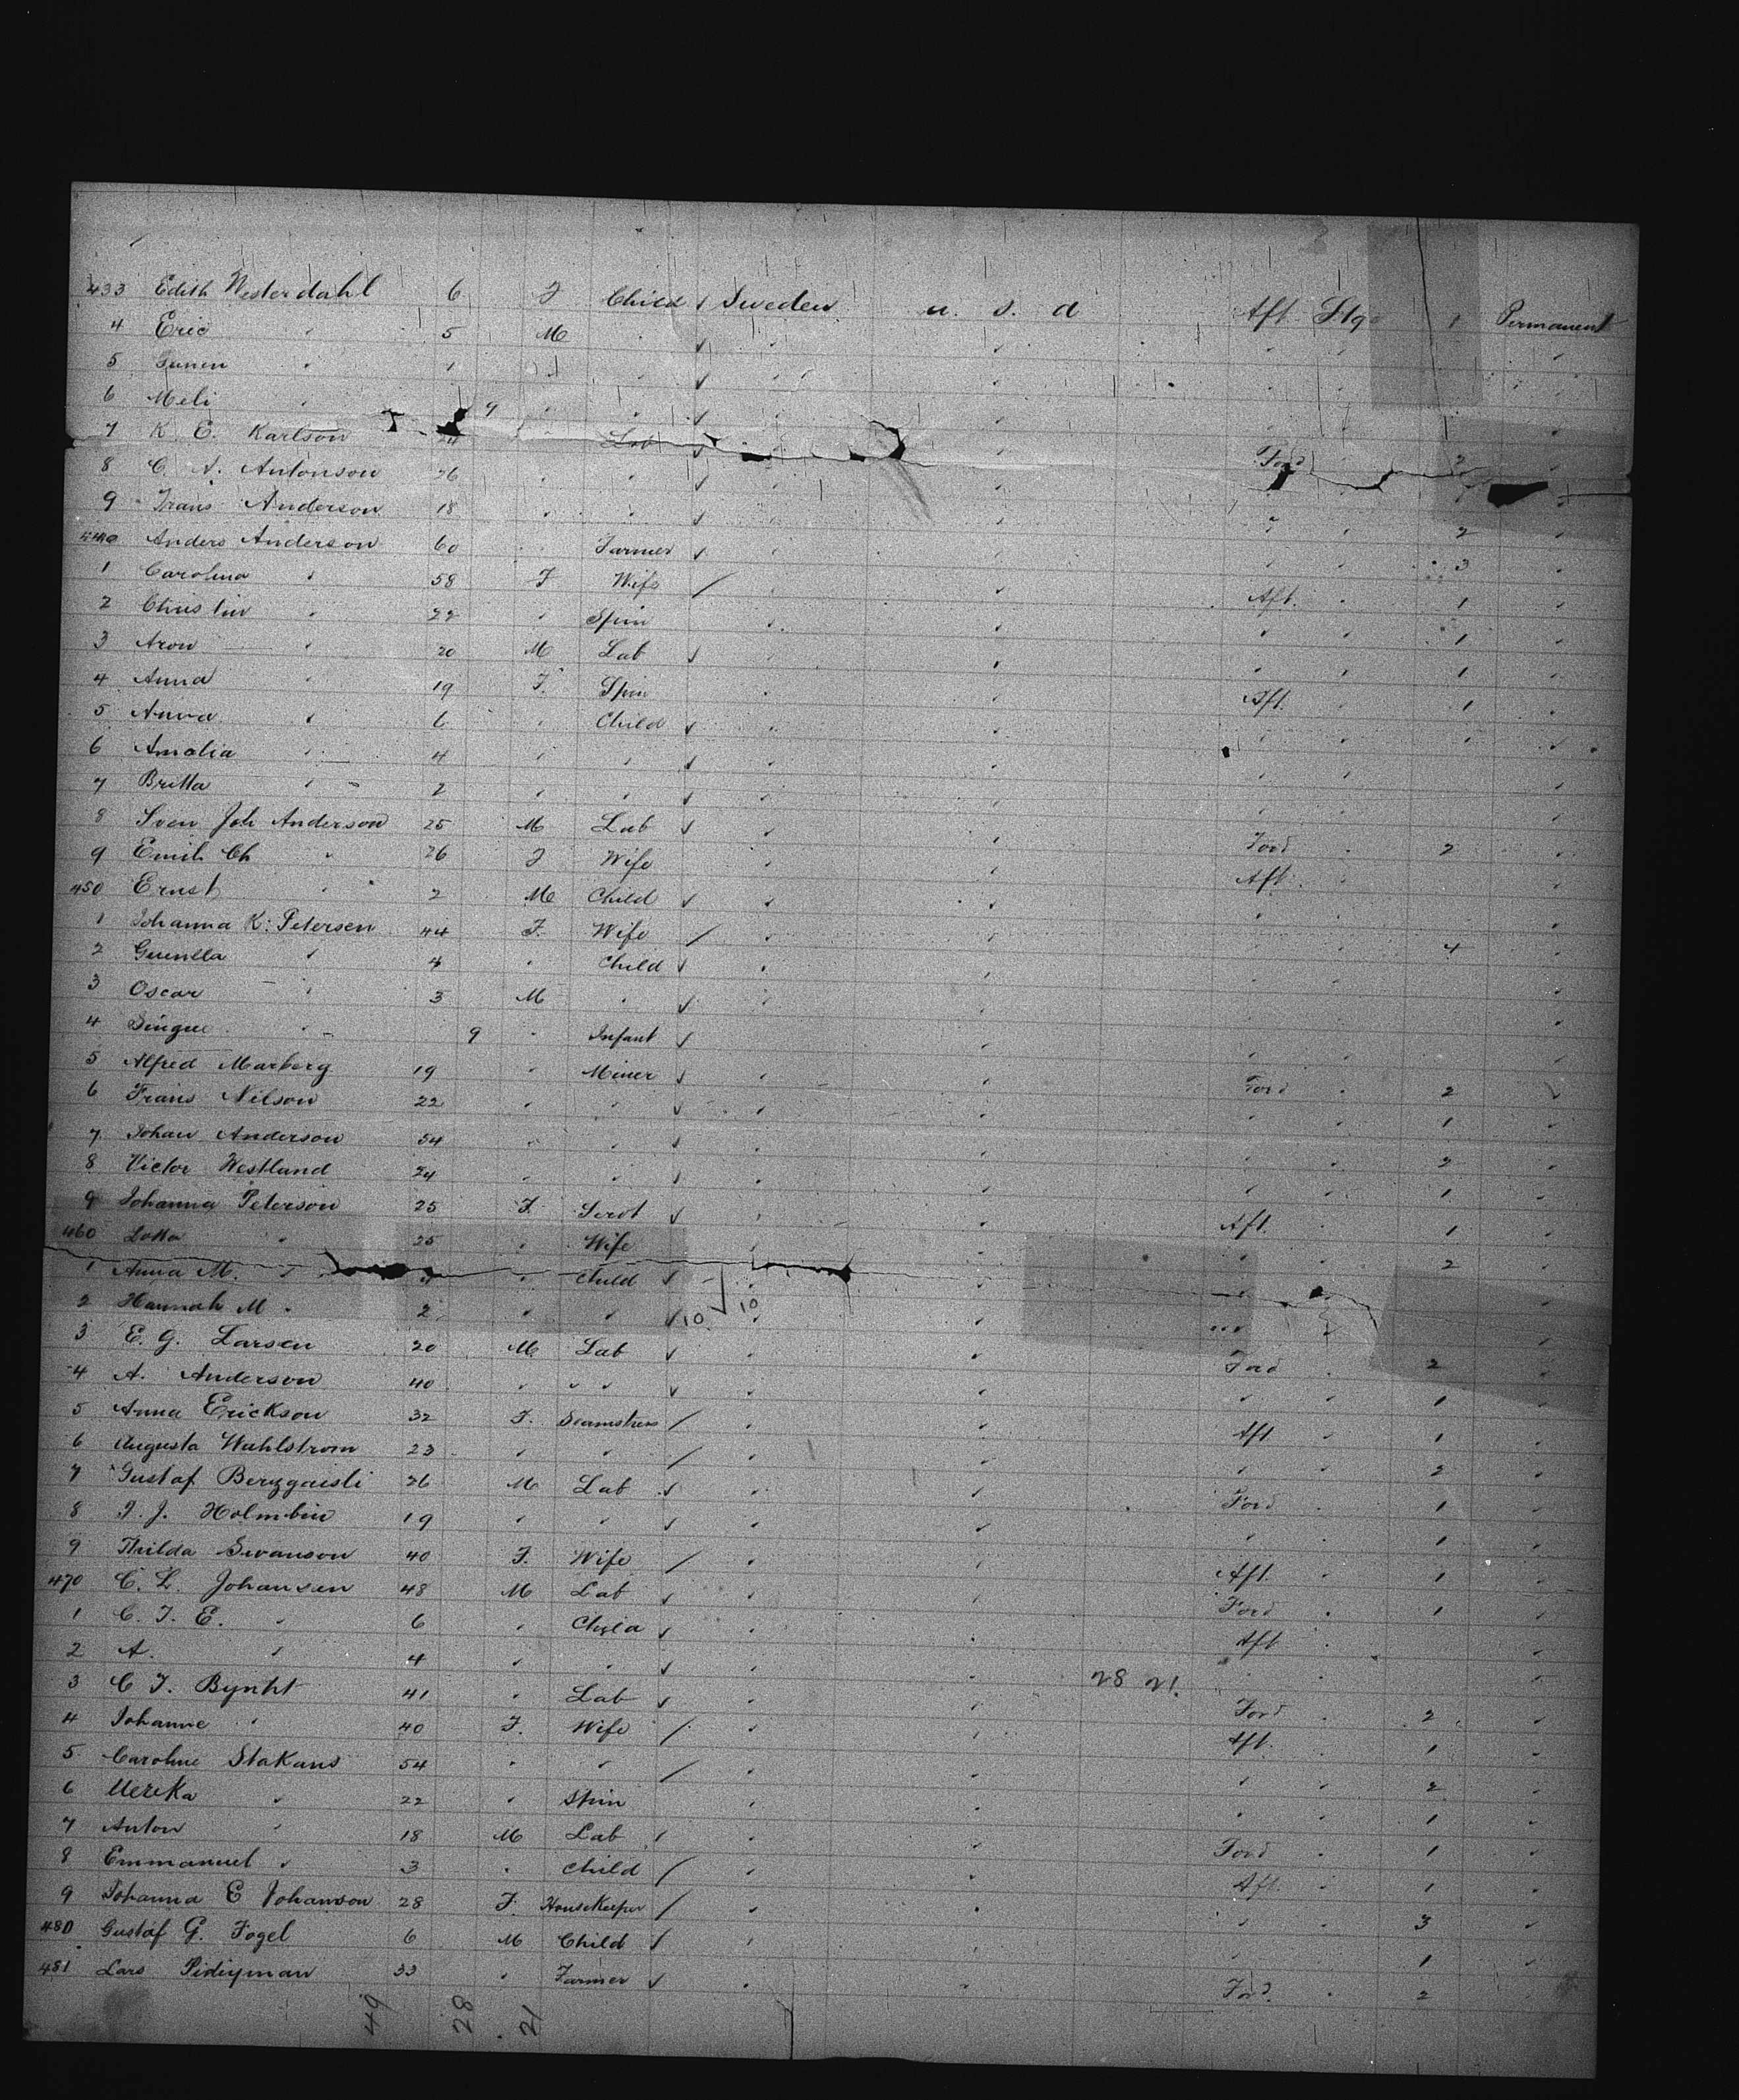 433 Edith Westerdahl 6 F Child Sweden u. S. a Aft Stge 1 Permanent
4 Eric " 5 M " " " " " "
5 Gunen " 1 " " " " " " "
6 Meli " 9 " " " " " " "
7 K. E. Karlson 24 " Lab " " Ford " 2 "
8 C. A. Antonson 26 " " " " " " "
9 Frans Anderson 18 " " " " " " 2 "
440 Anders Anderson 60 " Farmer " " " " 3 "
1 Carolina " 58 F Wife " " Aft. " 1 "
2 Christin " 22 " Spin " " " " 1 "
3 Aron " 20 M Lab " " " " 1 "
4 Anna " 19 F. Spin " " Aft. " 1 "
5 Anna " 6 " Child " " " " "
6 Amalia " 4 " " " " " " "
7 Britta " 2 " " " " " " "
8 Sven Joh Anderson 25 M Lab " " Ford " 2 "
9 Emili Ch " 26 F Wife " " Aft. " "
450 Ernst " 2 M Child " " " "
1 Johanna K. Petersen 44 F. Wife " " " 4 "
2 Gunilla " 4 " Child " " " "
3 Oscar " 3 M " " " "
4 Singue " 9 " Infant " " " "
5 Alfred Marberg 19 " Miner " " Ford " 2 "
6 Frans Nilson 22 " " " " " " 1 "
7 Johan Anderson 54 " " " " " " 2 "
8 Victor Westlund 24 " " " " " " 1 "
9 Johanna Peterson 25 F. Servt " " Aft. " 1 "
460 Lotta " 25 " Wife " " " " 2 "
1 Anna M. " " Child " " " "
2 Hannah M " 2 " " 10 10 " " " "
3 E. G. Larsen 20 M Lab " " Ford " 2 "
4 A. Anderson 40 " " " " " " " 1 "
5 Anna Erickson 32 F. Seamstress " " Aft " 1 "
6 Augusta Wahlstrom 23 " " " " " " 2 "
7 Gustaf Berzgaisli 26 M Lab " " Ford " 1 "
8 P. J. Holmbin 19 " " " " " " 1 "
9 Thilda Swanson 40 F. Wife " " Aft. " 1 "
470 C. L. Johansen 48 M Lab " " Ford " 1 "
1 C. F. E. " 6 " Child " " Aft " "
2 A. " 4 " " " " 28 21 " " "
3 C F. Bynht 41 " Lab " " Ford " 2 "
4 Johanne " 40 F. Wife " " Aft. " 1 "
5 Caroline Stakans 54 " " " " " " 2 "
6 Uerika " 22 " Spin " " " " 1 "
7 Anton " 18 M Lab " " Ford " 1 "
8 Emmanuel " 3 " Child " " Aft. " 1 "
9 Johanna E Johanson 28 F. HouseKeeper " " " " 3 "
480 Gustaf G. Fogel 6 M Child " " " " 1 "
481 Lars Pidiyman 33 " Farmer " " Ford. " 2
49 28 21